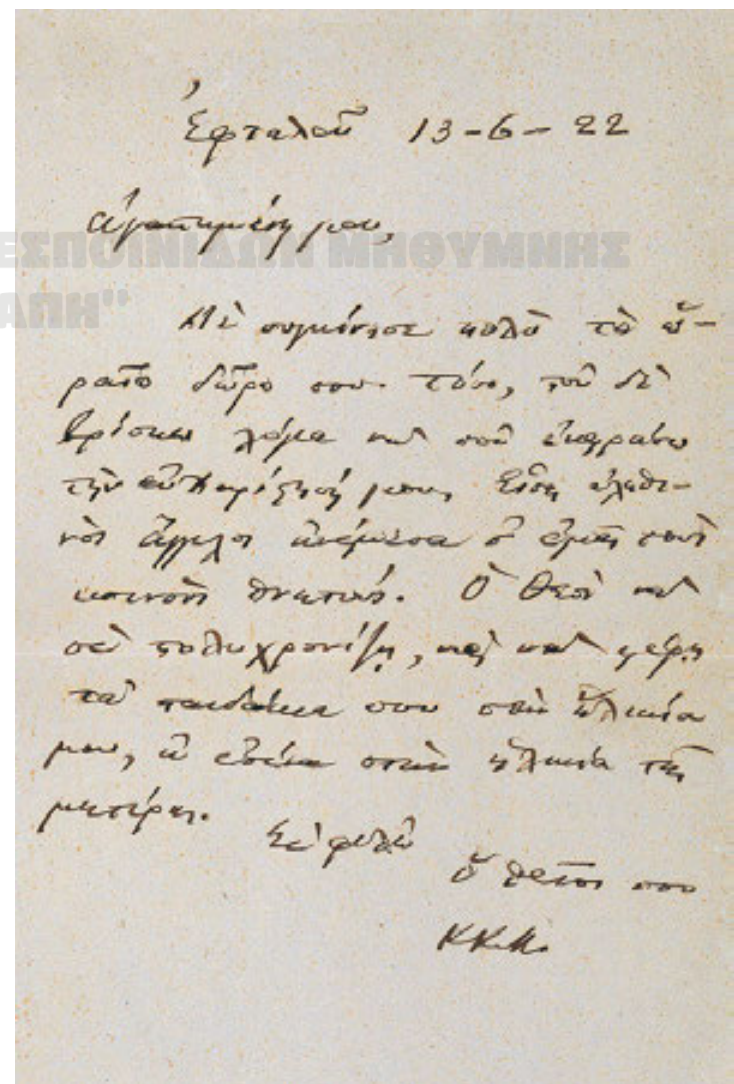 Ἐφταλοῦ 13-6-22
ἀγαπημένη μου,
ΣΗΝΜΥΘΗΜ
ΑΠΗ"
Μὲ συγκίνησε πολὺ τὸ ὡ-
ραῖο δῶρο σου. Τόσο, ποὺ δὲ
βρίσκω λόγια νὰ σοῦ ἐκφράσω
τὴν εὐχαρίστησή μου. Εἶσαι ἀληθι-
νὸς ἄγγελος ἀνάμεσα σ' ἐμᾶς τοὺς
κοινοὺς θνητούς. Ὁ Θεὸς νὰ
σὲ πολυχρονίζῃ, καὶ νὰ φέρῃ
τὰ παιδάκια σου στὴν ἡλικία
μου, κ' ἐσένα στὴν ἡλικία τῆς
μητέρας.
Σὲ φιλῶ
ὁ θεῖος σου
Κ.Κ.Μ.